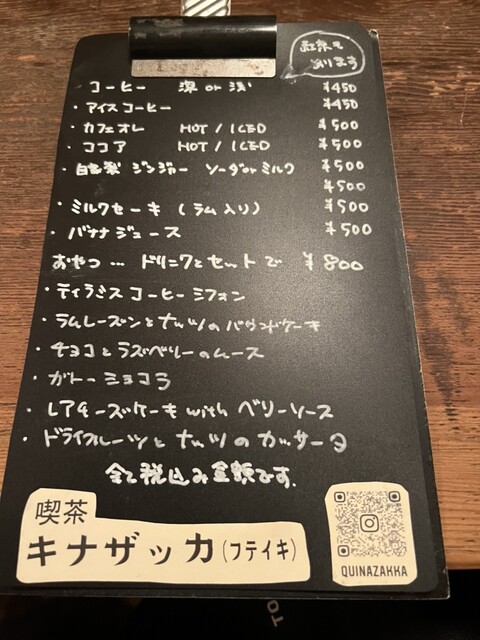 紅茶も
あります
コーヒー 深 or 浅 ¥450
・アイスコーヒー ¥450
・カフェオレ HOT / ICED ¥500
・ココア HOT / ICED ¥500
・自家製 ジンジャー ソーダorミルク ¥500
¥500
・ミルクセーキ (ラム入り) ¥500
・バナナジュース ¥500
おやつ … ドリンクとセットで ¥800
・ティラミスコーヒーシフォン
・ラムレーズンとナッツのパウンドケーキ
・チョコとラズベリーのムース
・ガトーショコラ
・レアチーズケーキ with ベリーソース
・ドライフルーツとナッツのカッサータ
全て税込み金額です.
喫茶
キナザッカ(フテイキ)
QUINAZAKKA
TO